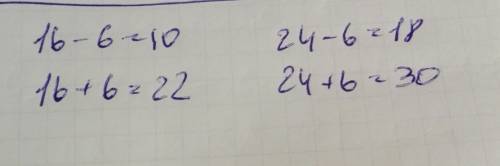 16-6=10 24-6=18
16+6=22 24+6=30